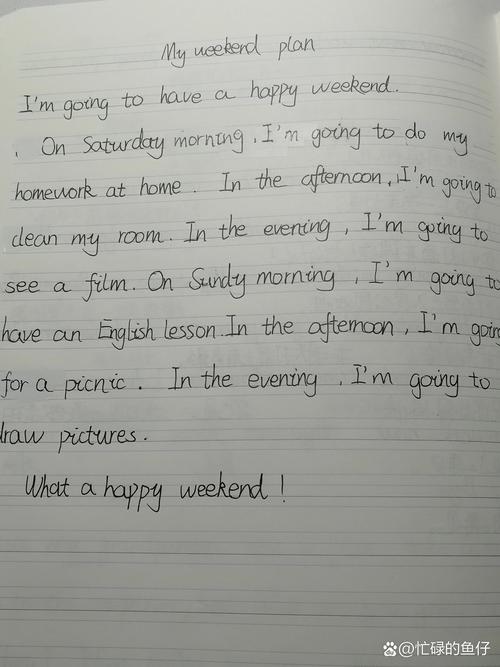 My weekend plan
I'm going to have a happy weekend.
. On Saturday morning, I'm going to do my
homework at home. In the afternoon, I'm going to
clean my room. In the evening, I'm going to
see a film. On Sundy morning, I'm going to
have an English lesson. In the afternoon, I'm going
for a picnic. In the evening, I'm going to
draw pictures.
What a happy weekend!
@忙碌的鱼仔